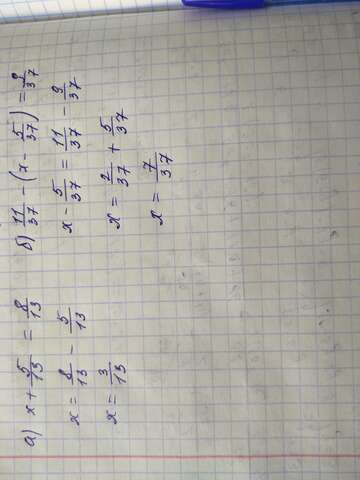 а) x + 5/13 = 8/13
x = 8/13 - 5/13
x = 3/13
б) 11/37 - (x - 5/37) = 9/37
x - 5/37 = 11/37 - 9/37
x = 2/37 + 5/37
x = 7/37